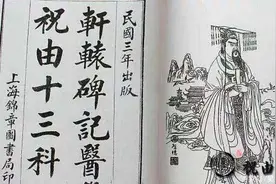 民國三年出版
軒轅碑記醫學
祝由十三科
上海錦章圖書局印